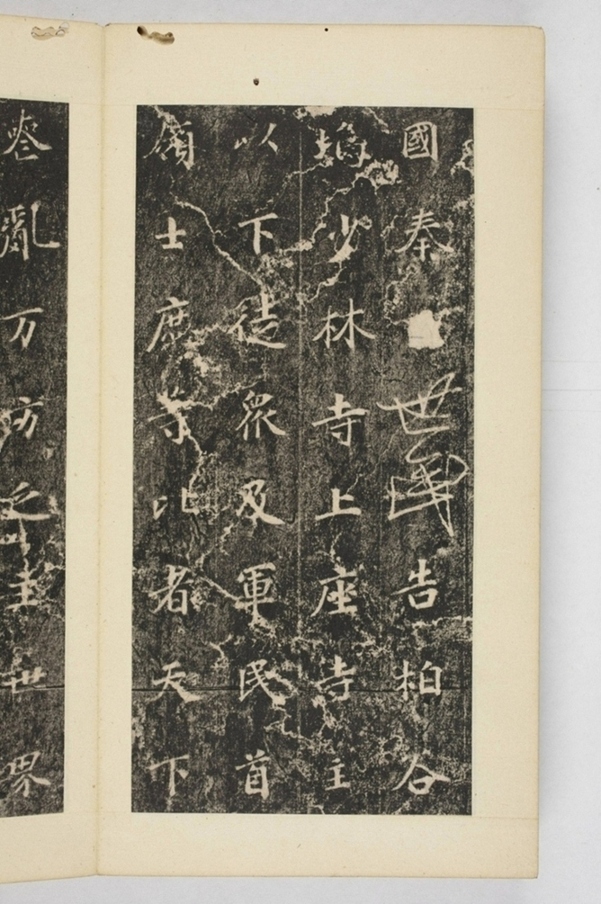 國秦世民告柏谷
塢少林寺上座寺主
以下徒衆及軍民首
領士庶等比者天下
喪亂万方乏主世界